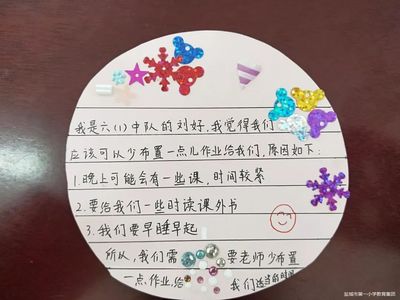 我是六(1)中队的刘好,我觉得我们
应该可以少布置一点儿作业给我们,原因如下:
1.晚上可能会有一些课,时间较紧
2.要给我们一些时读课外书
3.我们要早睡早起
所以,我们需要老师少布置
一点,作业,给我们适当的时间
盐城市第一小学教育集团